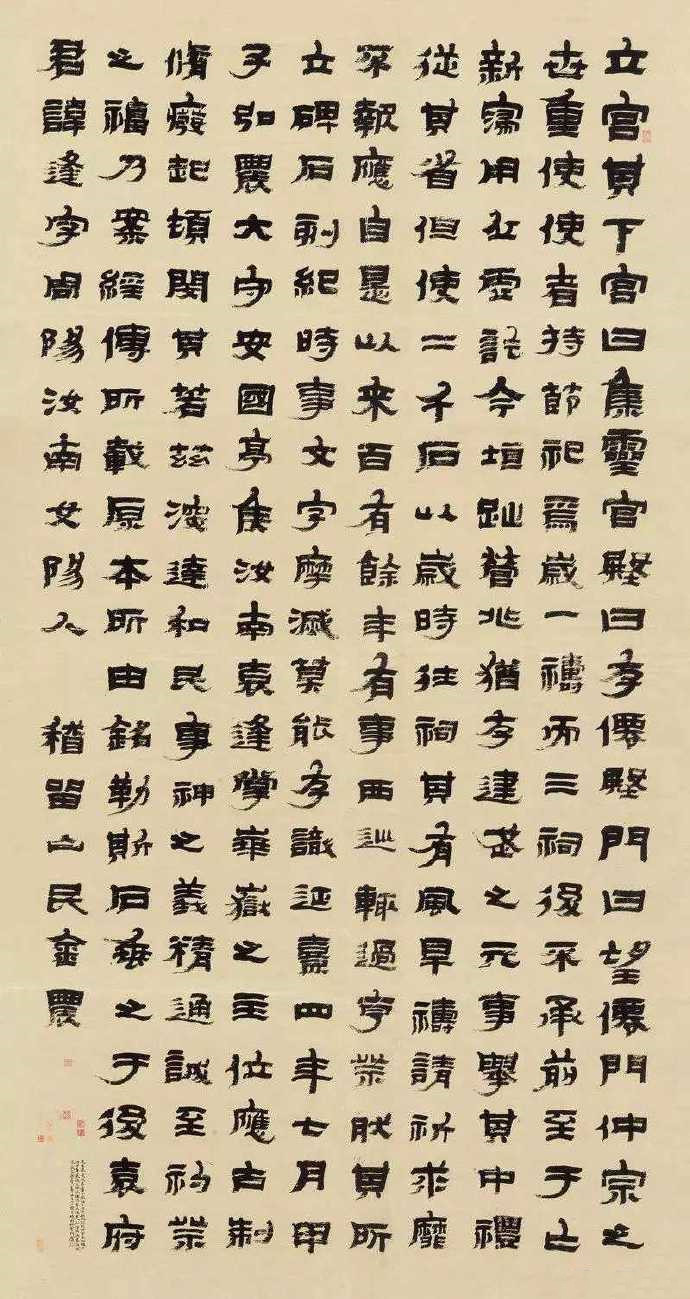 立宫其下宫曰集靈宫殿曰存僊殿門曰望僊門仲宗之
世重使使者持節祀焉歲一禱而三祠後不承前至于亡
新寖用丘虚訖今垣趾營兆猶存建武之元事舉其中禮
從其省但使二千石以歲時往祠其有風旱禱請祈求靡
不報應自是以來百有餘年有事西巡輒過亨祭然其所
立碑石刻紀時事文字摩滅莫能存識延熹四年七月甲
子弘農大守安國亭侯汝南袁逢掌華嶽之主位應古制
脩廢起頓閔其若茲深達和民事神之義精通誠至礿祭
之福乃案經傳所載原本所由銘勒斯石垂之于後袁府
君諱逢字周陽汝南女陽人 稽留山民金農